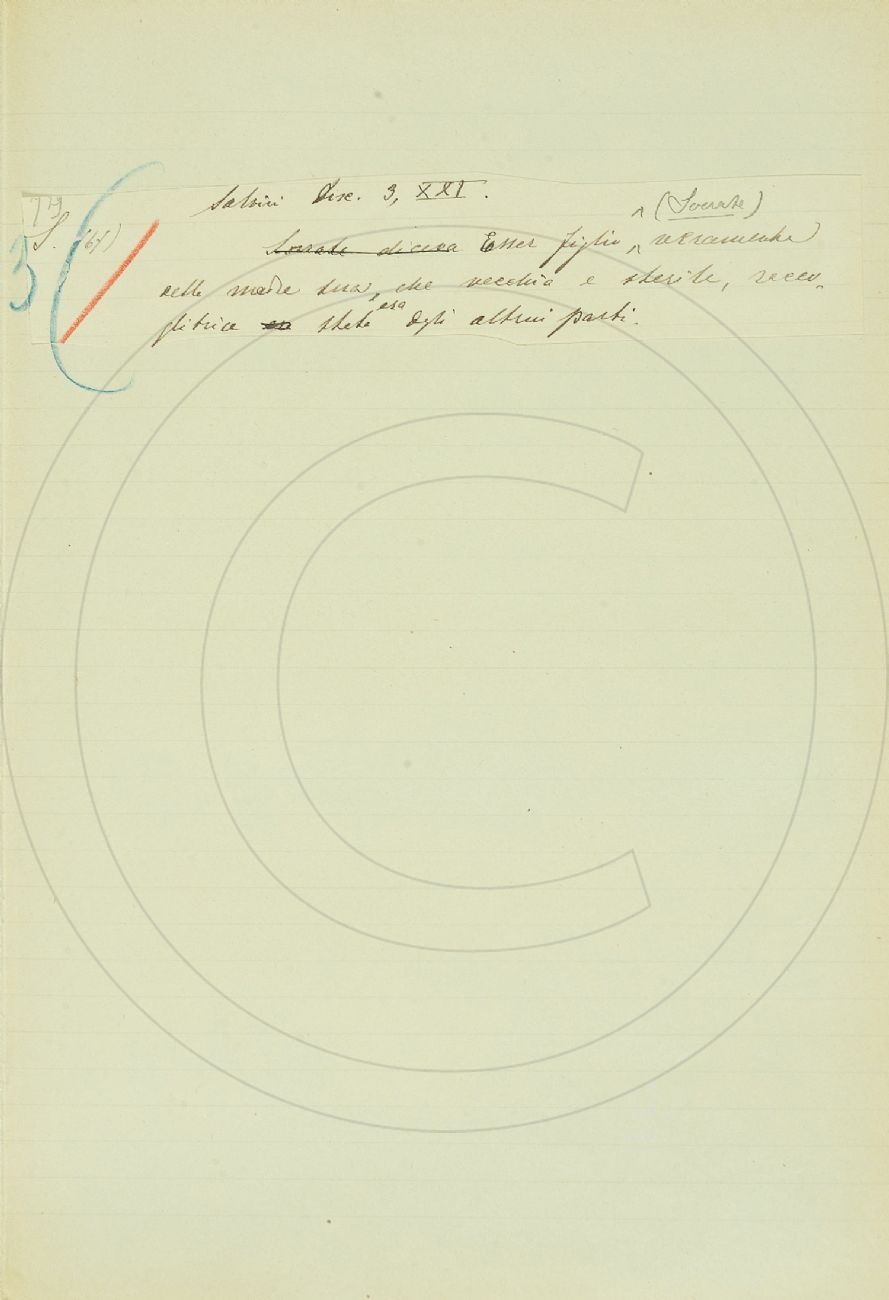 Salvini Disc. 3, XXI.
(Socrate)
S. (67)
Socrate diceva Esser figlio veramente
della madre sua, che vecchia e sterile, racco-
glitrice era degli altrui parti.
3